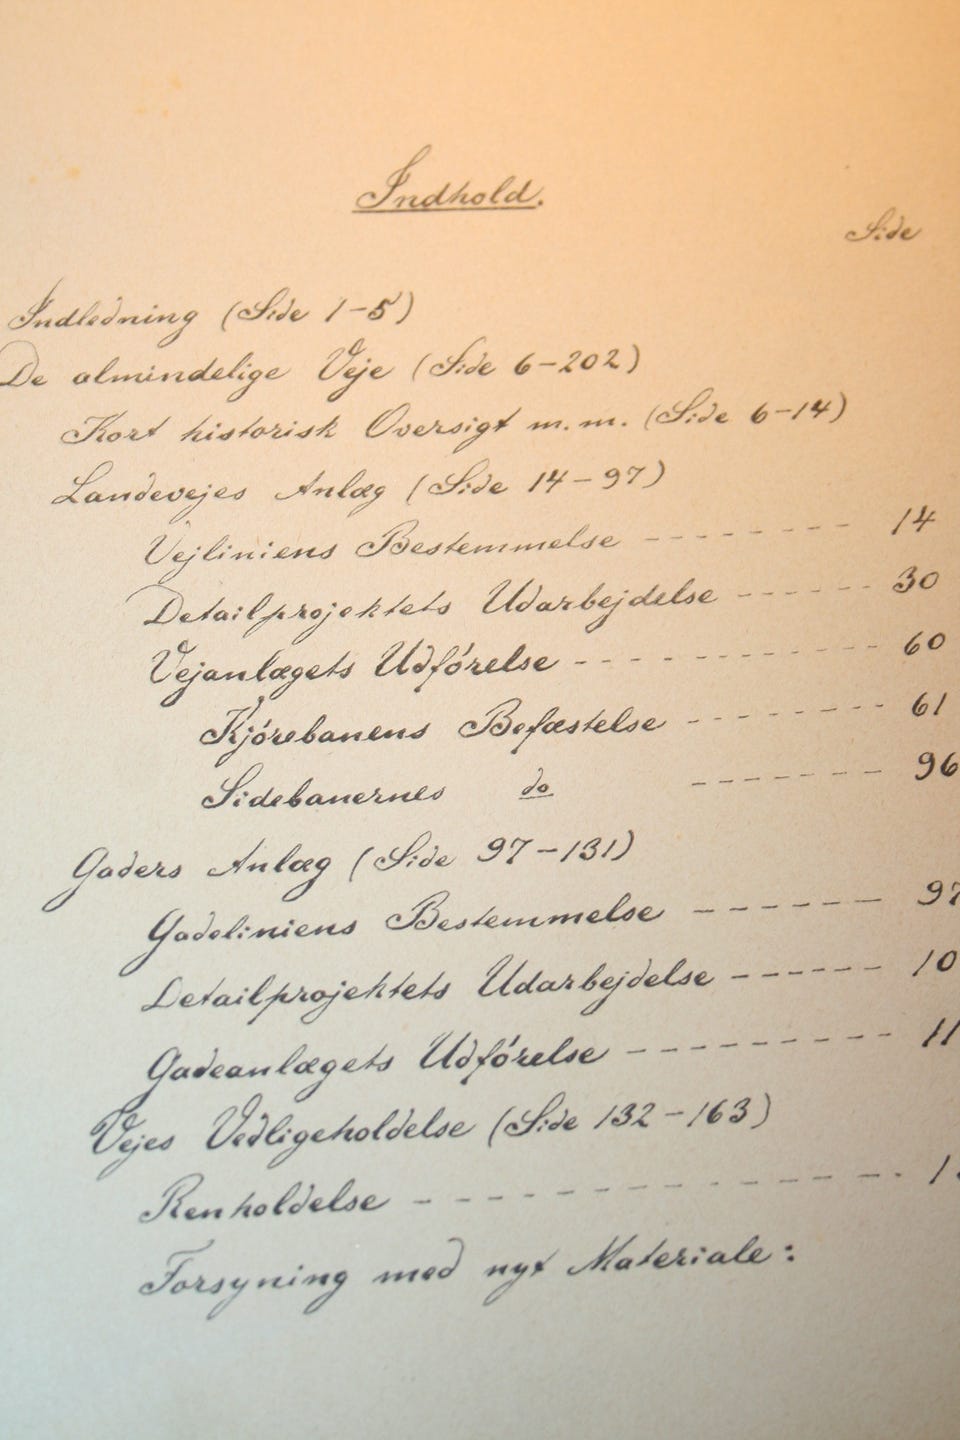 Indhold.
Side
Indledning (Side 1-5)
De almindelige Veje (Side 6-202)
Kort historisk Oversigt m.m. (Side 6-14)
Landevejes Anlæg (Side 14-97)
Vejliniens Bestemmelse ------- 14
Detailprojektets Udarbejdelse ------ 30
Vejanlægets Udførelse ---------- 60
Kjørebanens Befæstelse --------- 61
Sidebanernes do ------- 96
Gaders Anlæg (Side 97-131)
Gadeliniens Bestemmelse ------ 97
Detailprojektets Udarbejdelse ------ 10
Gadeanlægets Udførelse --------- 11
Vejes Vedligeholdelse (Side 132-163)
Renholdelse ------------ 1
Forsyning med nyt Materiale: